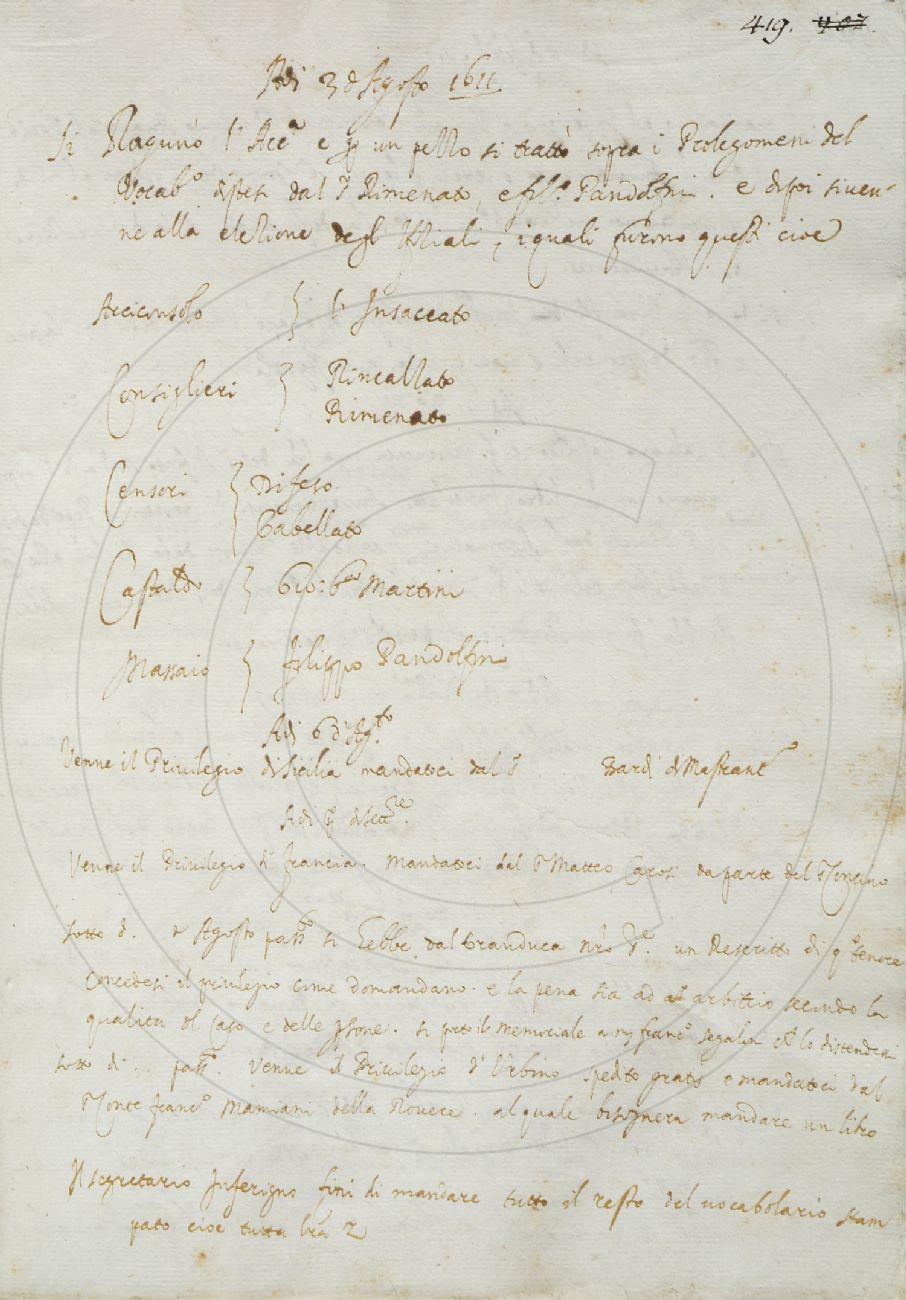 419. 407.
Adi 3 d'Agosto 1611.
Si Ragunò l'Acc.a e p un pezzo si trattò sopra i Prolegomeni del
Vocab.o distesi dal S.r Rimenato, e fil.o Pandolfini. e dipoi si ven=
ne alla elezione degl'Ufiziali, i quali furono questi cioè
Arciconsolo } l'Insaccato
Consiglieri } Rincalzato
Rimenato
Censori } Difeso
Gabellato
Castaldo } Gio: b.a Martini
Massaio } Filippo Pandolfini
Adi 6 d'Ag.to
Venne il Privilegio di Sicilia mandatoci dal S.r Bardi di
Adi d Sett.re
Venne il Privilegio di Francia. Mandatoci dal S. Matteo da parte del
sotto d. d'Agosto pass.o si hebbe dal Granduca nr̄o S.re un Rescritto di q.o tenore
Concedesi il privilegio come domandano. e la pena sia ad arbitrio secondo la
qualità del caso e delle psone. si portò il memoriale a franc.o Segaloni ch̄ lo distendessi
sotto dì .. pass.o Venne il Privilegio d'Urbino spedito gratis e mandatoci dal
Conte franc.o Mamiani della Rovere. al quale bisognera mandare un libro
Il segretario Inferigno finì di mandare tutto il resto del vocabolario stam
pato cioe tutta la Z